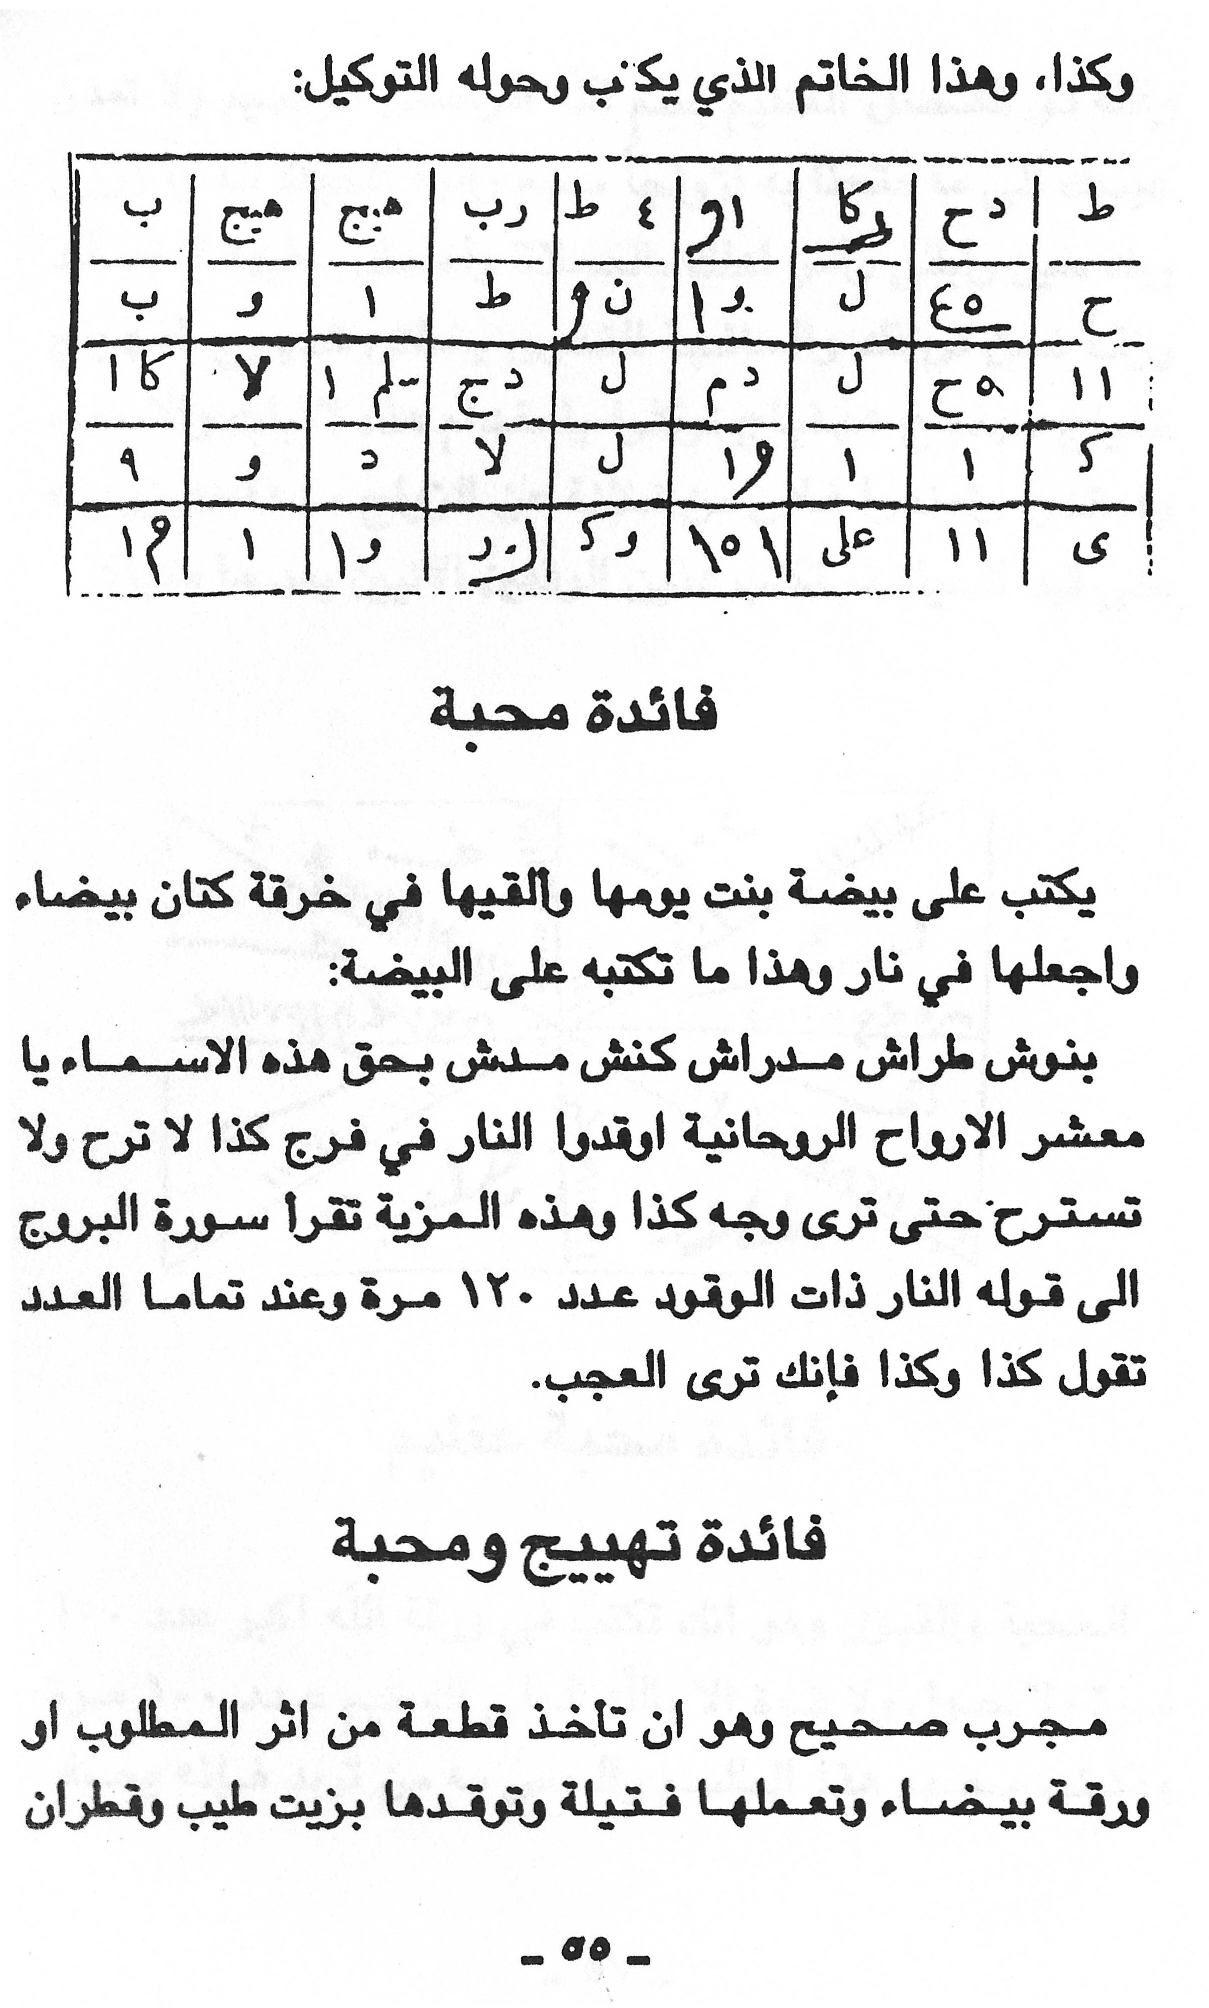 وكذا، وهذا الخاتم الذي يكتب وحوله التوكيل:
ط د ح ركا او ٤ ط رب هيج هيج ب
ح ٤٥ ل و ا ن و ط ا و ب
١١ ٥ح ل دم ل دج سلم ١ لا كا ا
ك ا ا و ا ل لا د و ٩
ى ١١ على ١٥١ وك و ا ا م ا
فائدة محبة
يكتب على بيضة بنت يومها وألقيها في خرقة كتان بيضاء
واجعلها في نار وهذا ما تكتبه على البيضة:
بنوش طراش مدراش كنش مدش بحق هذه الاسماء يا
معشر الارواح الروحانية اوقدوا النار في فرج كذا لا ترح ولا
تسترح حتى ترى وجه كذا وهذه المزية تقرأ سورة البروج
الى قوله النار ذات الوقود عدد ١٢٠ مرة وعند تماما العدد
تقول كذا وكذا فإنك ترى العجب.
فائدة تهييج ومحبة
مجرب صحيح وهو ان تأخذ قطعة من اثر المطلوب او
ورقة بيضاء وتعملها فتيلة وتوقدها بزيت طيب وقطران
- ٥٥ -